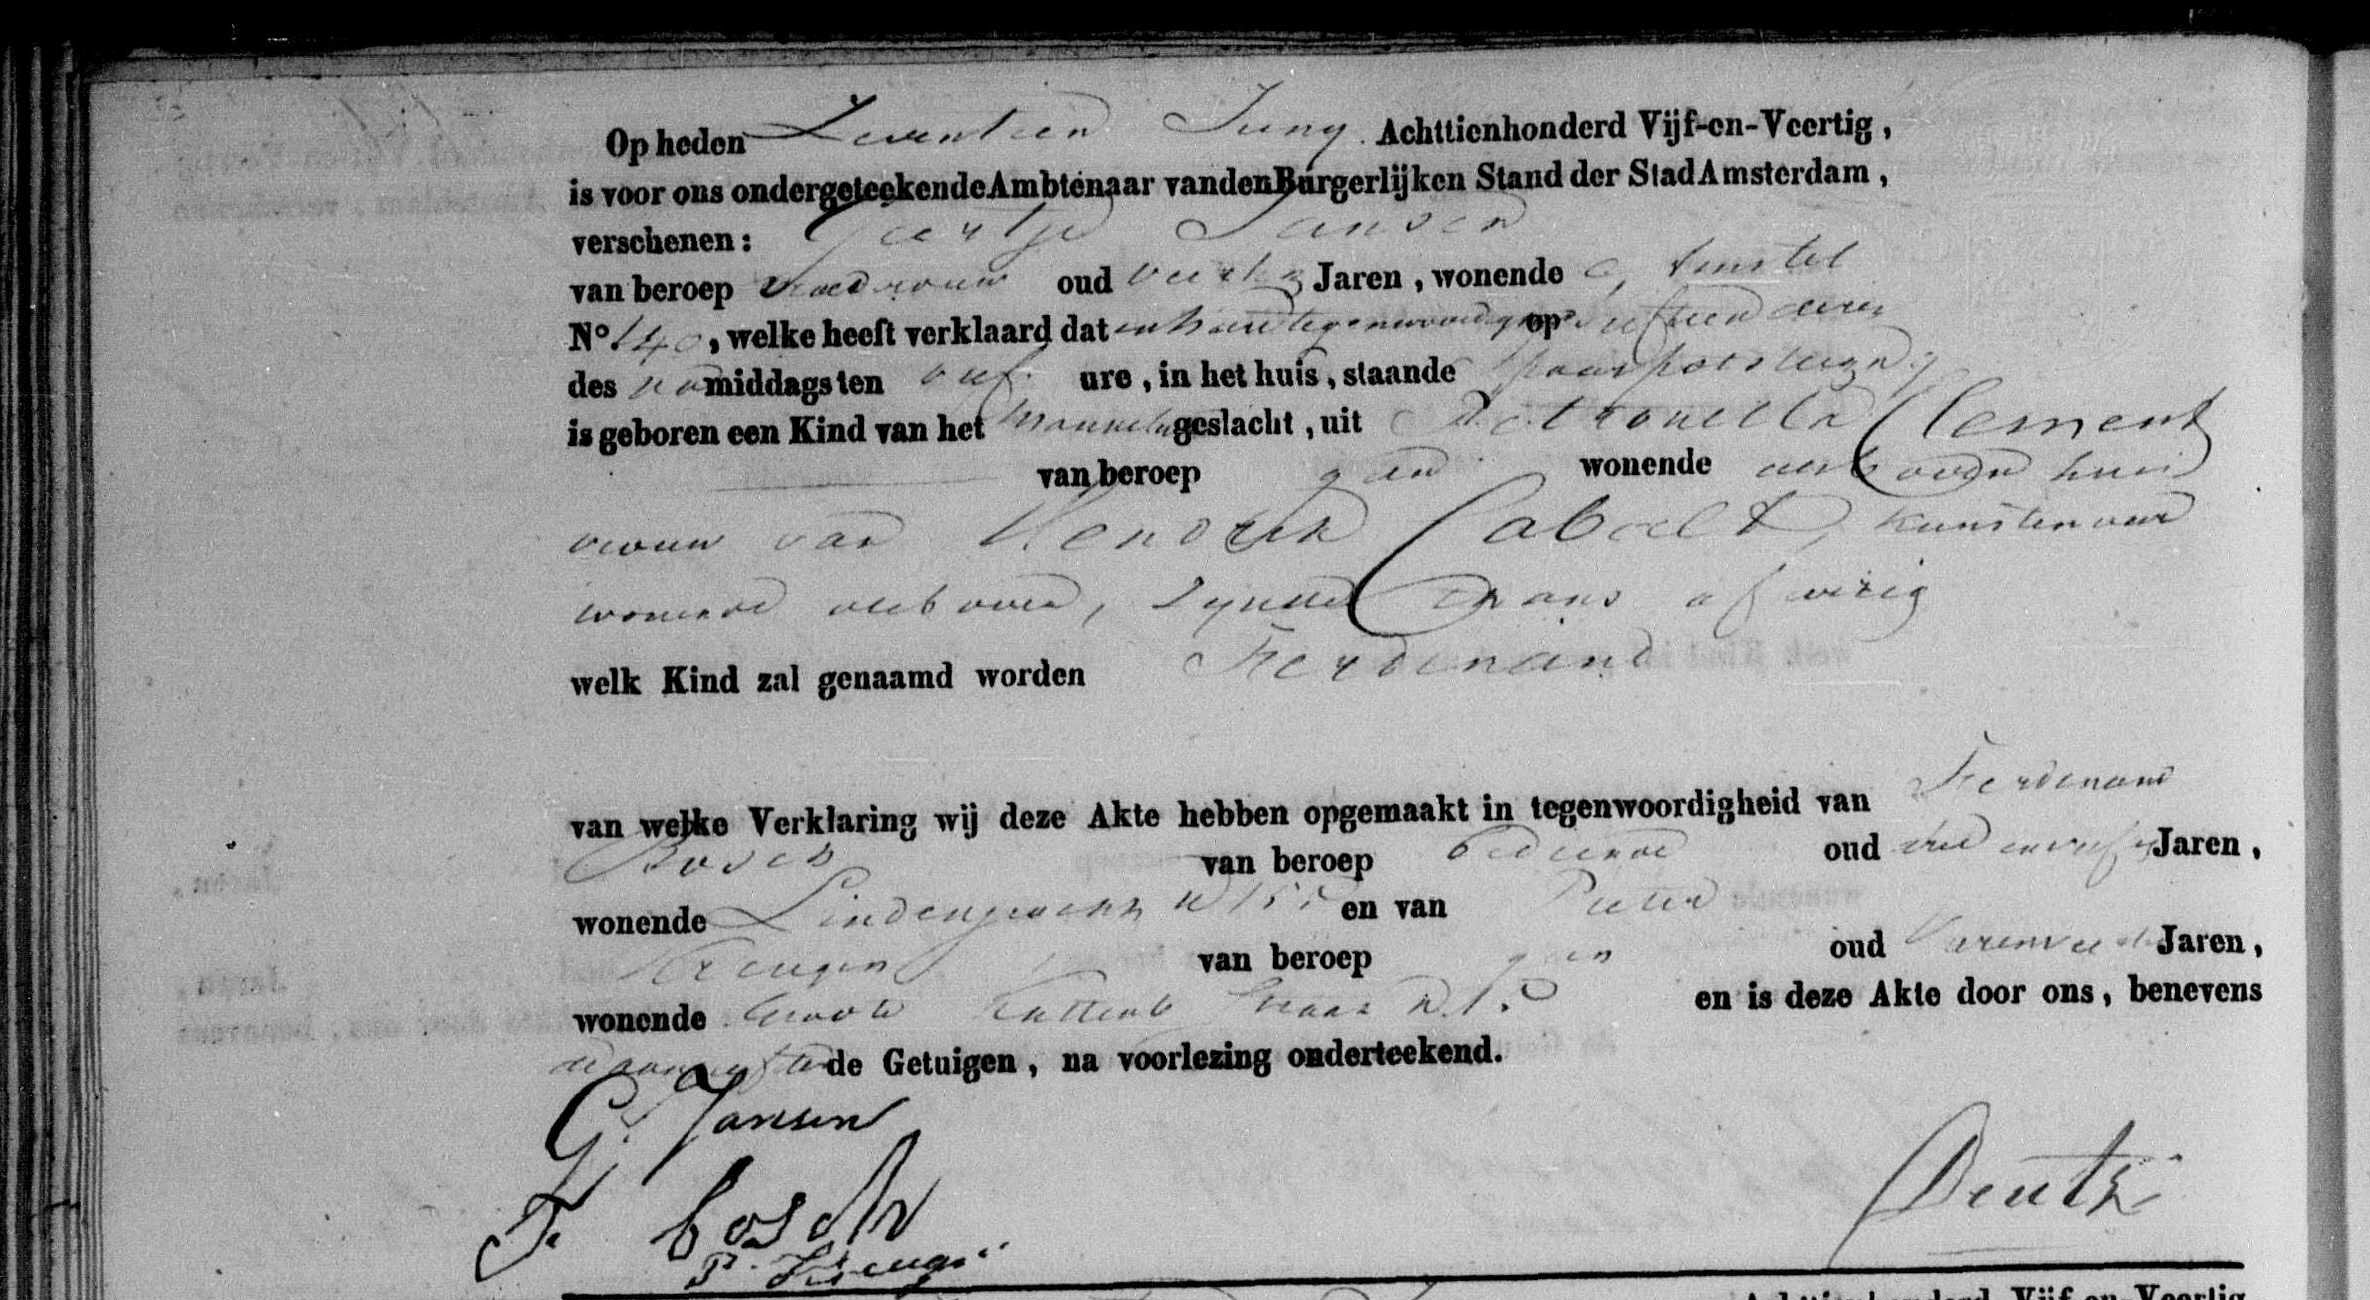 Op heden Zeventien Juny Achttienhonderd Vijf-en-Veertig,
is voor ons ondergeteekende Ambtenaar van den Burgerlijken Stand der Stad Amsterdam,
verschenen: Geertje Jansen
van beroep vroedvrouw oud veertig Jaren, wonende Amstel
No. 140, welke heeft verklaard dat in haar tegenwoordigheid op vyftien dezer
des namiddags ten vyf ure, in het huis, staande Spaarpotsteeg
is geboren een Kind van het Mannelyk geslacht, uit Petronella Clement
van beroep geen wonende aldaar huis
vrouw van Hendrik Cabalt, Kunstenaar
wonende als boven, zynde thans afwezig
welk Kind zal genaamd worden Ferdinand
van welke Verklaring wij deze Akte hebben opgemaakt in tegenwoordigheid van Ferdinand
Bosch van beroep bediende oud drie en vyftig Jaren,
wonende Lindengracht N 155 en van Pieter
Kreugen van beroep geen oud Jaren,
wonende Groote Kattenb Straat N. en is deze Akte door ons, benevens
de Getuigen, na voorlezing onderteekend.
G. Jansen
F. bosch
P. Kreuge
Deutz
Achttienhonderd Vijf-en-Veertig